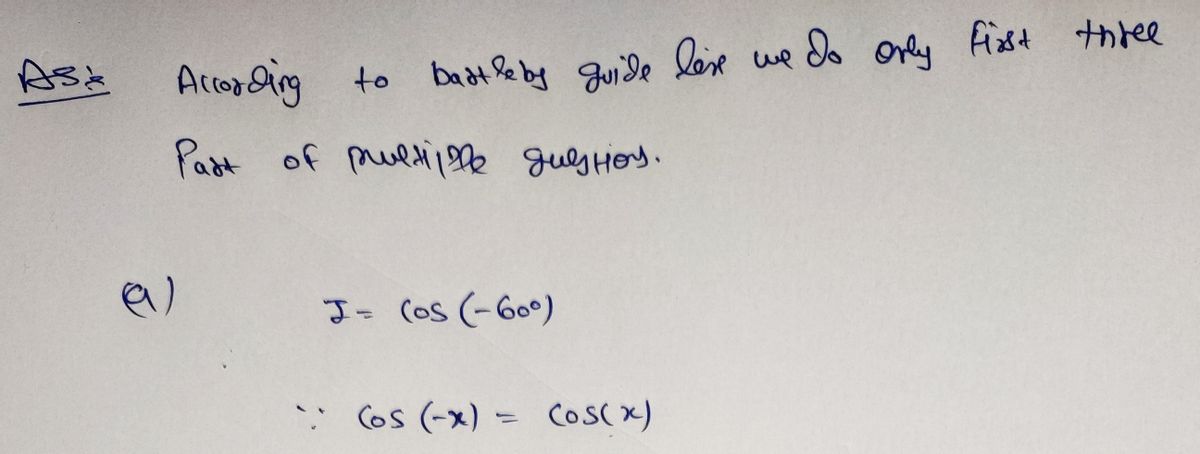 AS:
According to bartleby guide line we do only first three
Part of multiple questions.
a) I = cos (-60°)
∵ cos (-x) = cos(x)